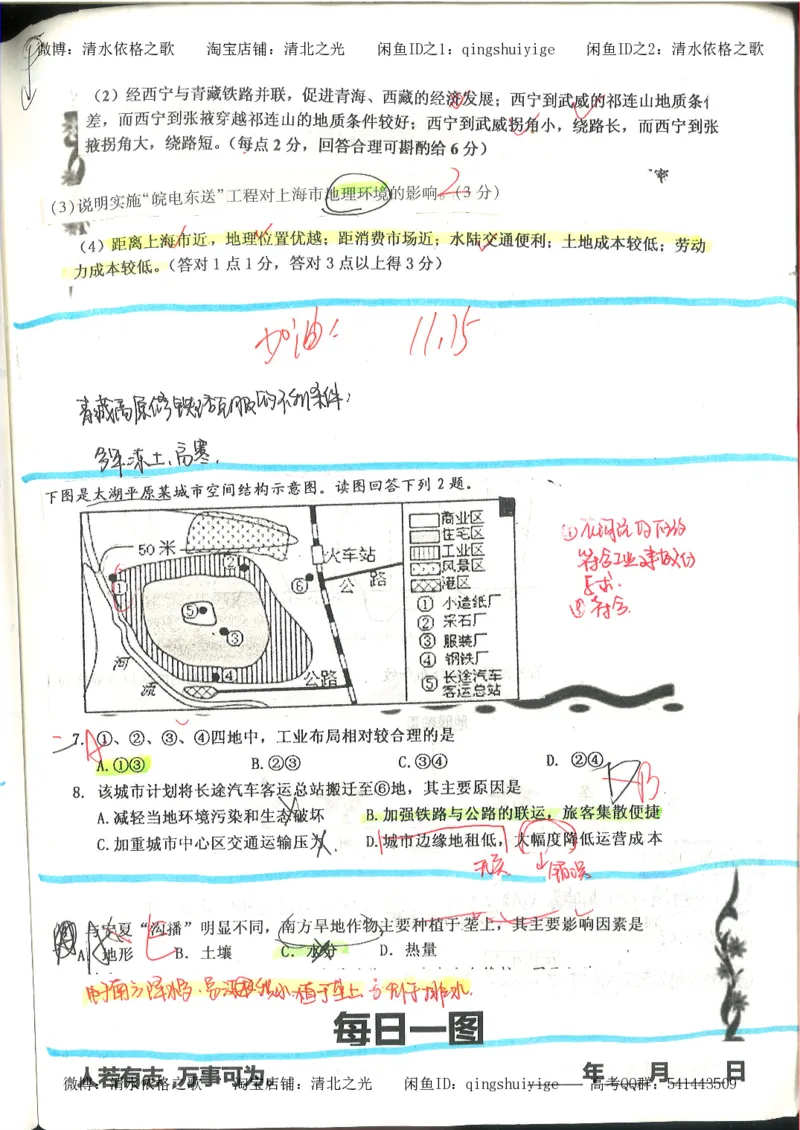 微博：清水依格之歌 淘宝店铺：清北之光 闲鱼ID之1：qingshuiyige 闲鱼ID之2：清水依格之歌
（2）经西宁与青藏铁路并联，促进青海、西藏的经济发展；西宁到武威的祁连山地质条件
差，而西宁到张掖穿越祁连山的地质条件较好；西宁到武威拐角小，绕路长，而西宁到张
掖拐角大，绕路短。（每点2分，回答合理可斟酌给6分）
(3)说明实施“皖电东送”工程对上海市地理环境的影响。（3分）
2
（4）距离上海市近，地理位置优越；距消费市场近；水陆交通便利；土地成本较低；劳动
力成本较低。（答对1点1分，答对3点以上得3分）
加油！ 11.15
青藏高原修铁路克服的不利条件：
多年冻土、高寒.
下图是太湖平原某城市空间结构示意图。读图回答下列2题。
50米
火车站
公路
公路
河流
① ② ③ ④ ⑤ ⑥
商业区
住宅区
工业区
风景区
港区
① 小造纸厂
② 采石厂
③ 服装厂
④ 钢铁厂
⑤ 长途汽车
客运总站
符合工业
要求.
符合.
7. ①、②、③、④四地中，工业布局相对较合理的是
A
A.①③ B.②③ C.③④ D. ②④
8. 该城市计划将长途汽车客运总站搬迁至⑥地，其主要原因是
B
A.减轻当地环境污染和生态破坏 B.加强铁路与公路的联运，旅客集散便捷
C.加重城市中心区交通运输压力 D.城市边缘地租低，大幅度降低运营成本
无关 错误
与宁夏“沟播”明显不同，南方旱地作物主要种植于垄上，其主要影响因素是
A. 地形 B. 土壤 C. 水分 D. 热量
每日一图
人若有志，万事可为。 年 月 日
微博：清水依格之歌 淘宝店铺：清北之光 闲鱼ID：qingshuiyige 高考QQ群：541443509